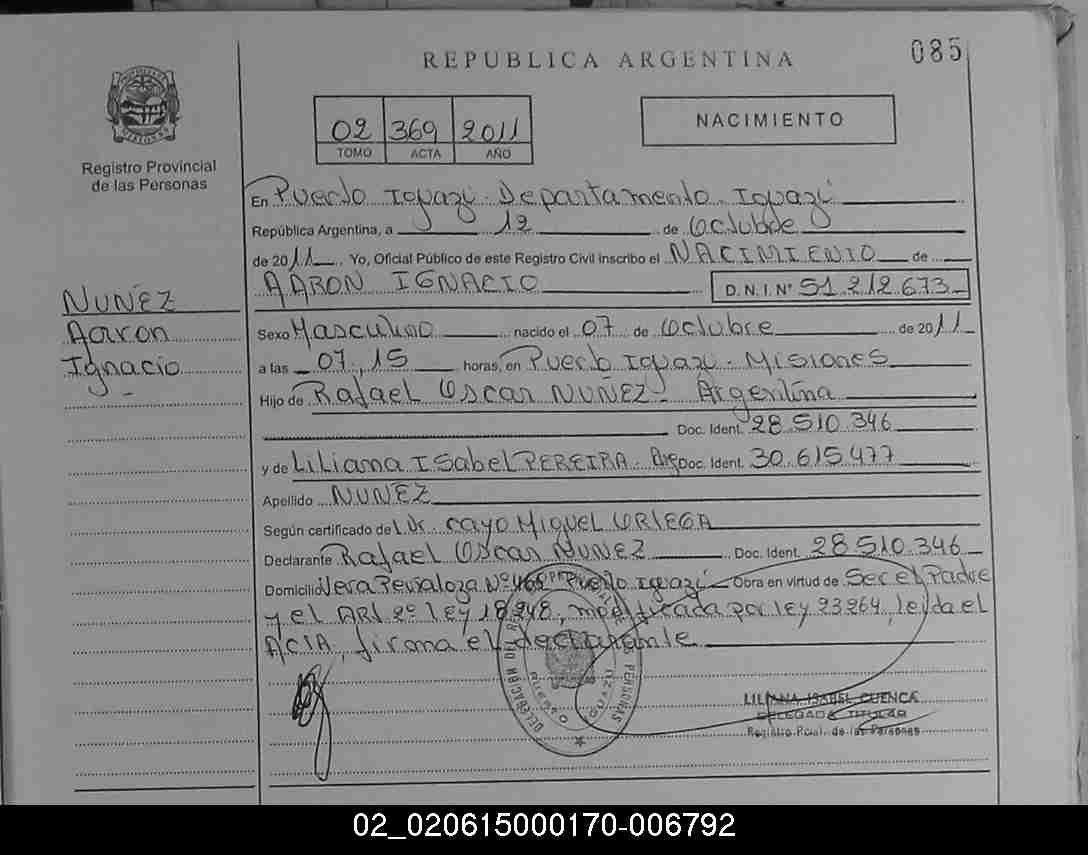 085
REPUBLICA ARGENTINA
02 369 2011
TOMO ACTA AÑO
NACIMIENTO
Registro Provincial
de las Personas
En Puerto Iguazú - Departamento Iguazú
República Argentina, a 12 de Octubre
de 2011. Yo, Oficial Público de este Registro Civil inscribo el NACIMIENTO de
AARON IGNACIO D.N.I. Nº 51.212.673
NUÑEZ
Aaron
Ignacio
Sexo Masculino nacido el 07 de Octubre de 2011
a las 07,15 horas, en Puerto Iguazú - Misiones
Hijo de Rafael Oscar NUÑEZ - Argentina
Doc. Ident. 28.510.346
y de Liliana Isabel PEREIRA - Arg Doc. Ident. 30.615.477
Apellido NUÑEZ
Según certificado de Dr. Cayo Miguel ORTEGA
Declarante Rafael Oscar NUÑEZ Doc. Ident. 28.510.346
Domicilio Vera Peñaloza Nº 468 Puerto Iguazú - Obra en virtud de Ser el Padre
y el ART 2º ley 18.248, modificada por ley 23264, leida el
ACTA, firma el declarante
DELEGACION DEL REGISTRO PERSONAS
PUERTO IGUAZU
LILIANA ISABEL CUENCA
DELEGADA TITULAR
Registro Pcial. de las Personas
02_020615000170-006792